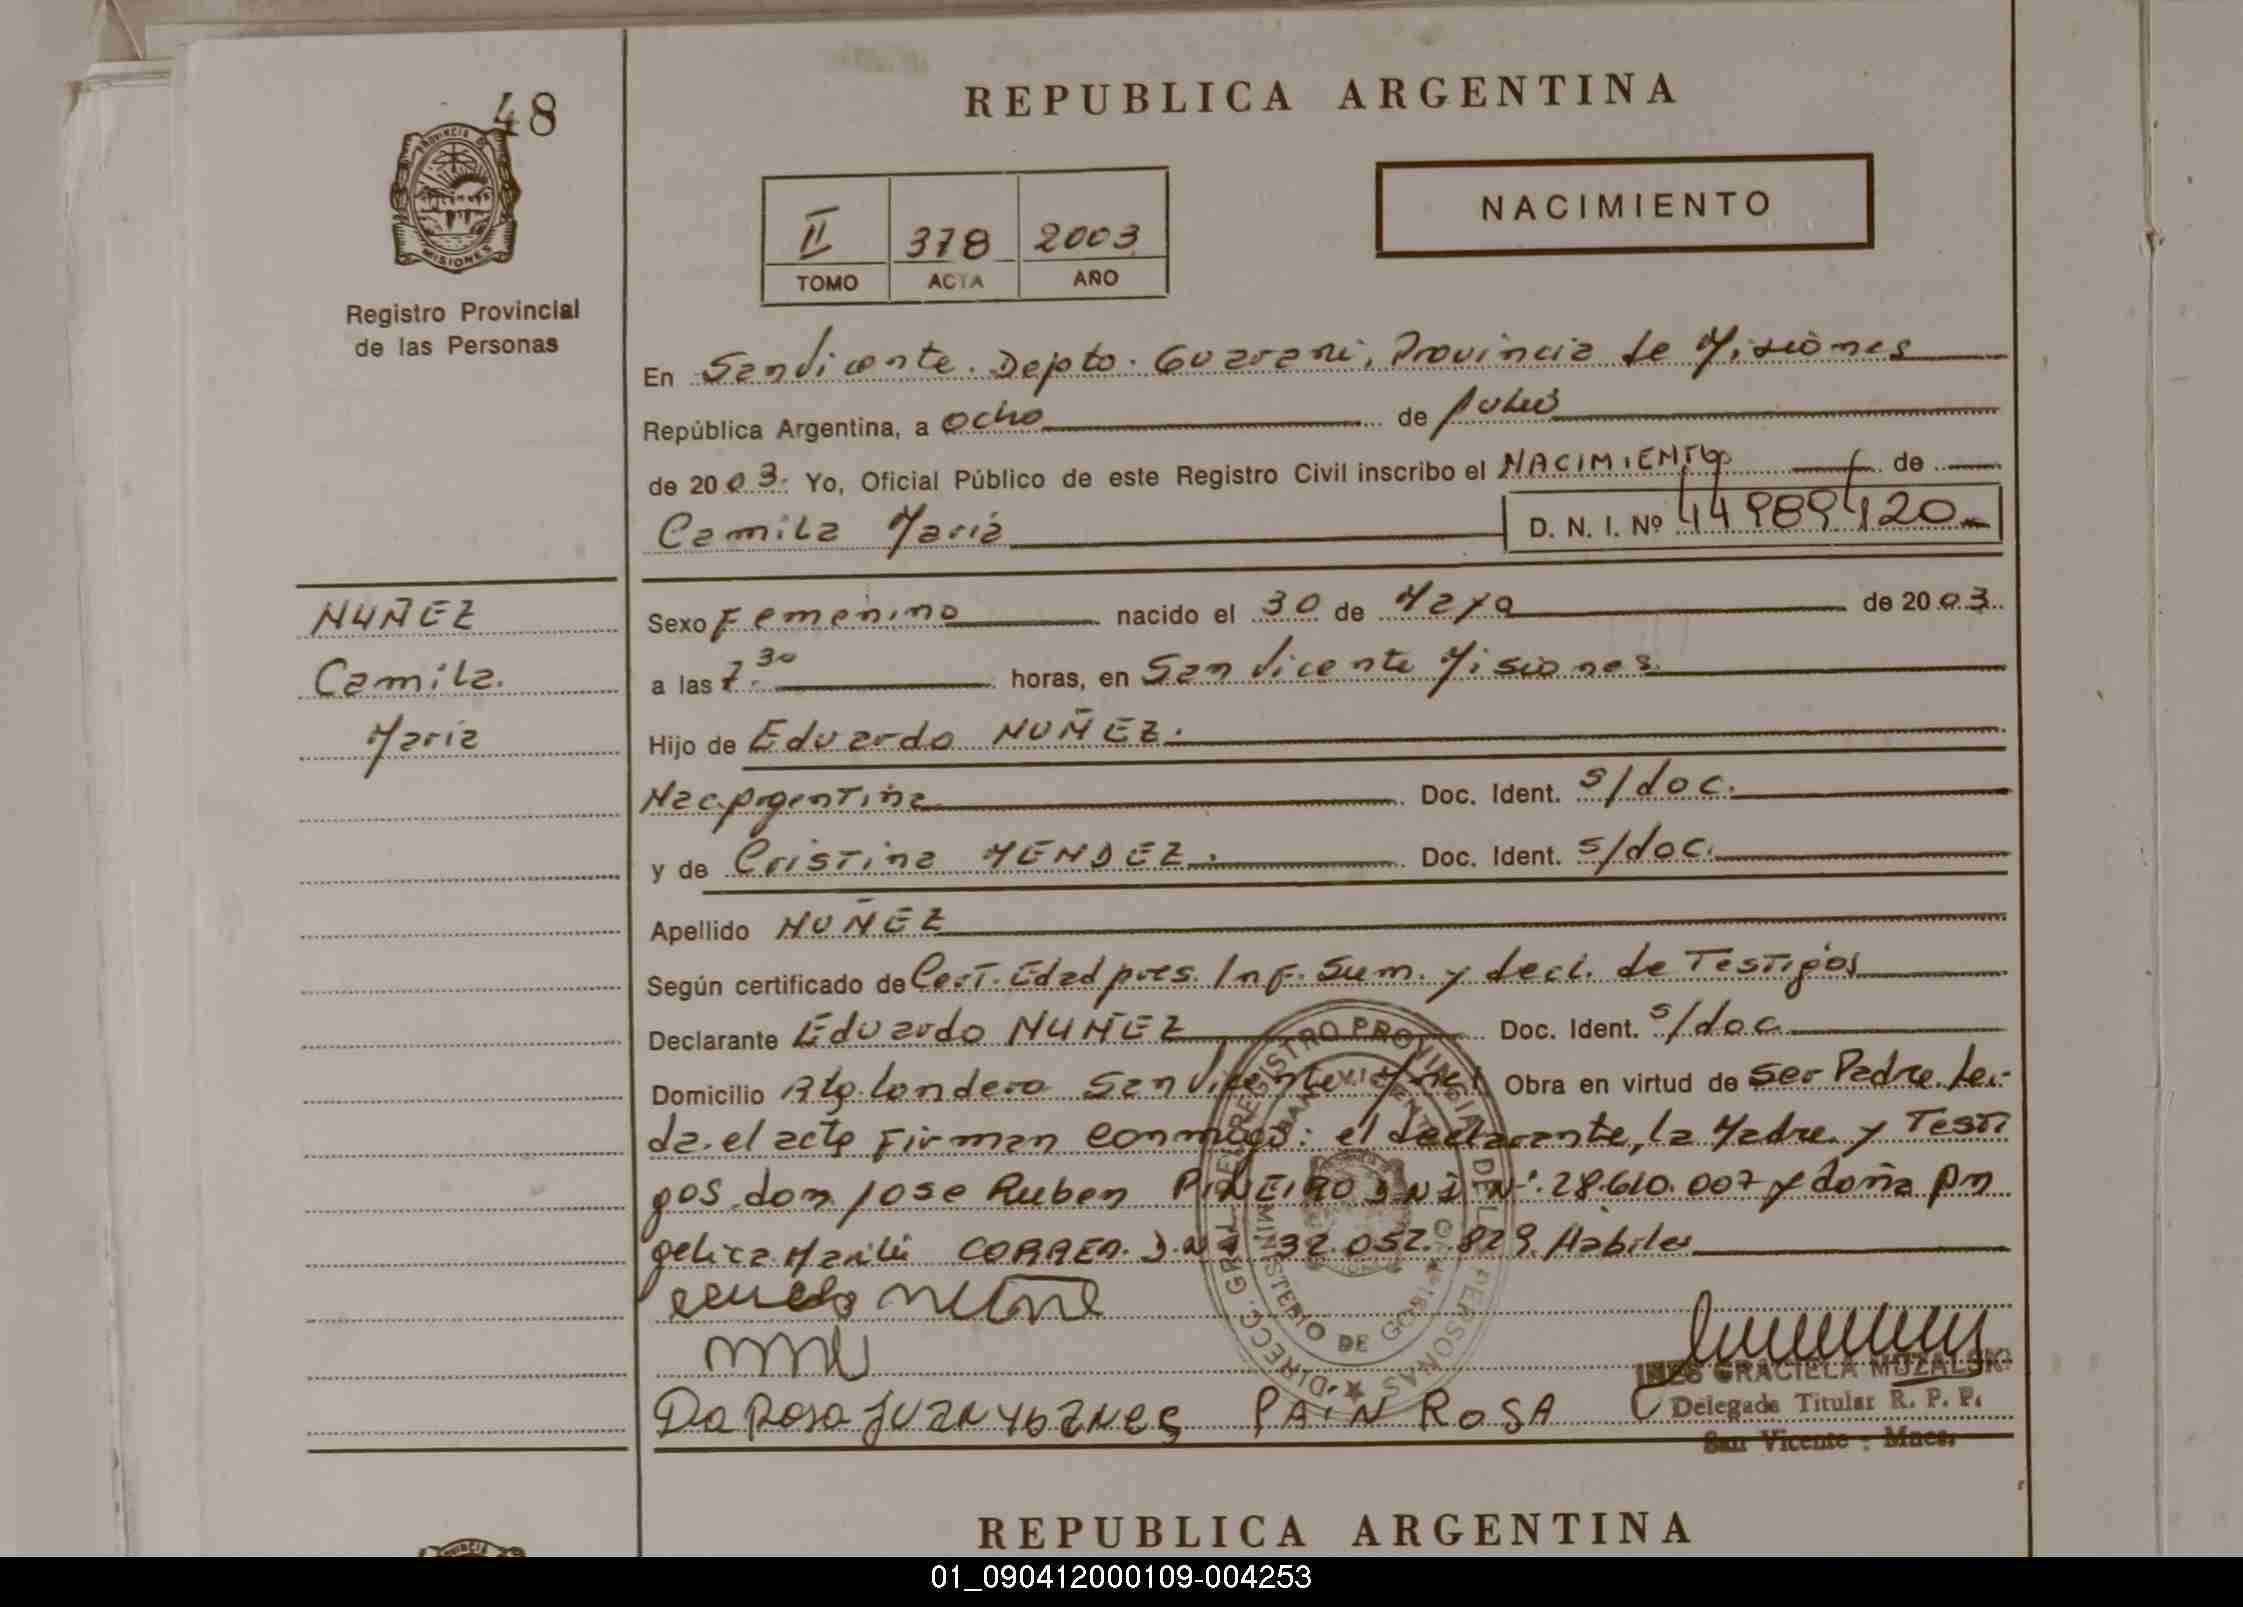 48
PROVINCIA DE
MISIONES
Registro Provincial
de las Personas
REPUBLICA ARGENTINA
II 378 2003
TOMO ACTA AÑO
NACIMIENTO
En San Vicente. Depto. Guarani, Provincia de Misiones
República Argentina, a ocho de Julio
de 2003. Yo, Oficial Público de este Registro Civil inscribo el NACIMIENTO de
Camila María D. N. I. Nº 44989120
NUÑEZ
Camila.
Maria
Sexo Femenino nacido el 30 de Mayo de 2003.
a las 7.30 horas, en San Vicente Misiones
Hijo de Eduardo NUÑEZ.
Nac. Argentina Doc. Ident. s/doc.
y de Cristina MENDEZ. Doc. Ident. s/doc.
Apellido NUÑEZ
Según certificado de Cert. Edad pres. Inf. Sum. y decl. de Testigos
Declarante Eduardo NUÑEZ Doc. Ident. s/doc
Domicilio Alto Landero San Vicente Mnes Obra en virtud de ser Padre. Lei-
da. el acta Firman conmigo: el declarante, la Madre y Testi
gos don Jose Ruben PIÑEIRO DNI Nº 28.610.007 y doña An
gelica CORREA. DNI 32.052.829. Hábiles
Da Rosa JUAN YBANES PAIN ROSA
REGISTRO PROVINCIAL DE LAS PERSONAS
MINISTERIO DE GOBIERNO
INES GRACIELA MUZALSKI
Delegada Titular R. P. P.
San Vicente - Mnes.
REPUBLICA ARGENTINA
PROVINCIA
01_090412000109-004253